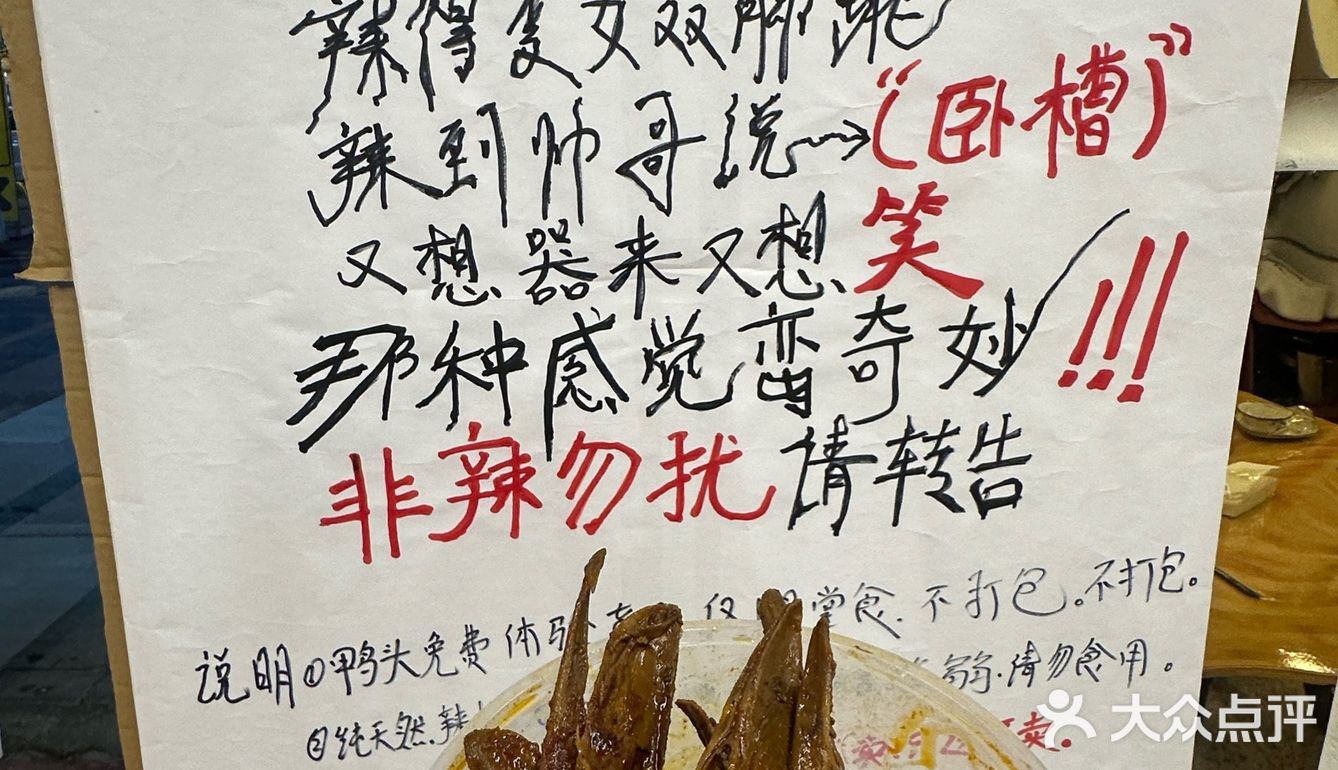 辣得美女双脚跳
辣到帅哥说→“(卧槽)”
又想器来又想笑
那种感觉蛮奇妙!!!
非辣勿扰请转告
说明①鸭头免费体验
堂食.不打包。不打包。
②纯天然.辣
请勿食用。
大众点评